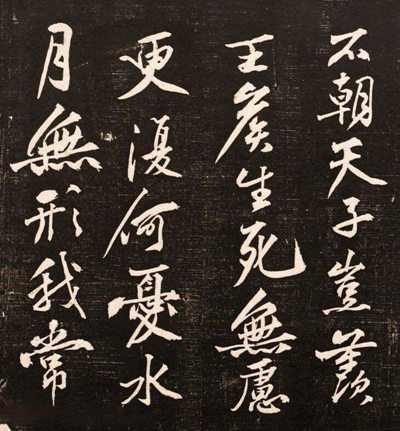 不朝天子豈羨
王矦生死無慮
更澓何憂水
月無形我常